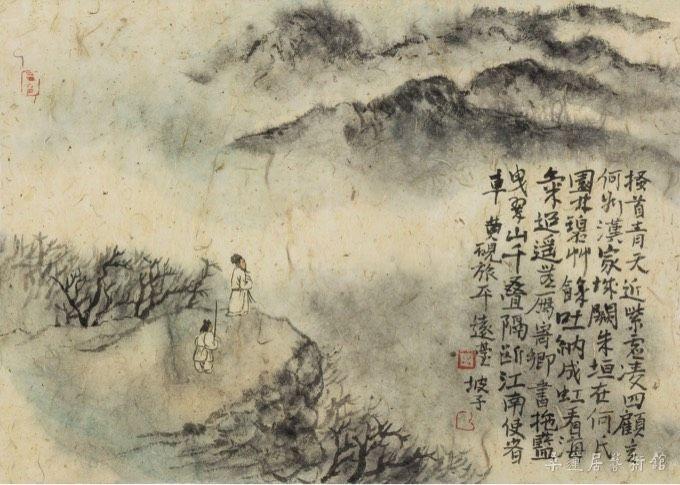 搔首青天近紫凌四顧意
何如漢家城闕朱垣在何氏
園林碧艸餘吐納成虹看海
氣迢遥無雁寄鄉書拖藍
曳翠山千叠隔斷江南使者
車 黃硯旅平遠臺 坡子
辛畫居藝術館